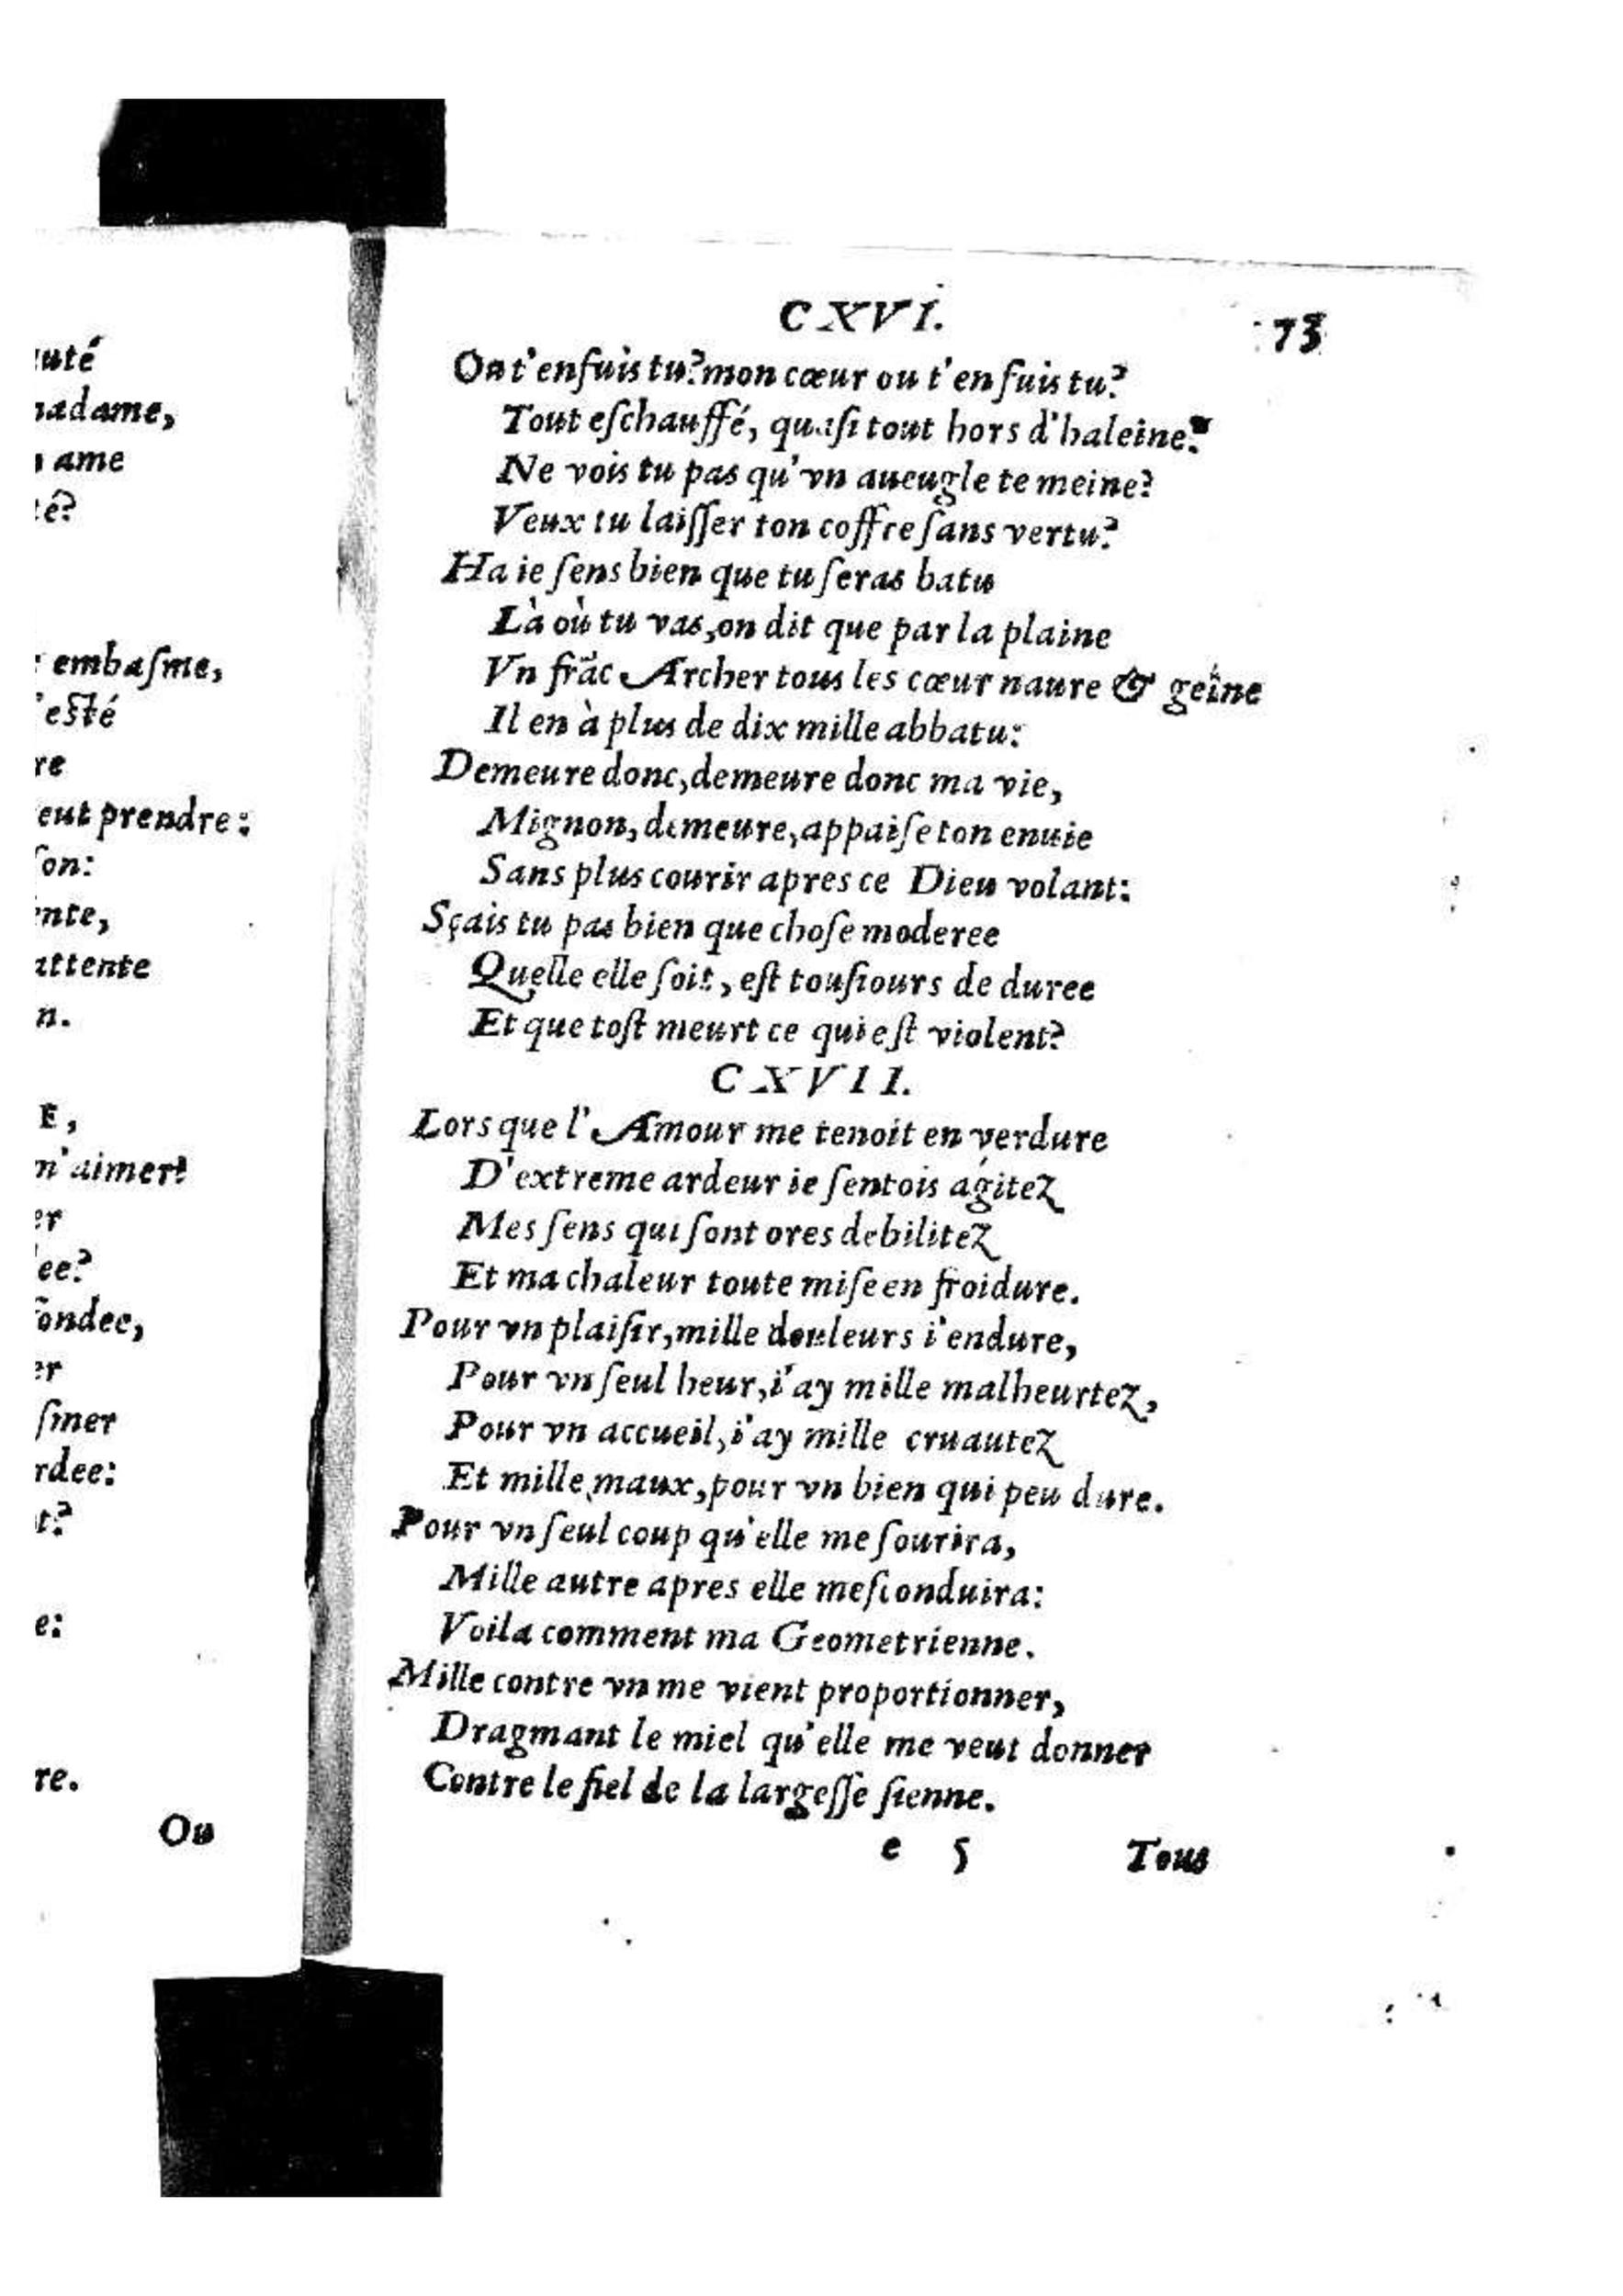 uté
madame,
ame
té?
embaſme,
'esté
re
eut prendre:
ſon:
ente,
attente
n.
E,
m'aimer?
er
ee?
fondee,
er
ſmer
rdee:
t?
e:
re.
Ou
CXVI.
73
Ou t'enfuis tu? mon cœur ou t'enfuis tu?
Tout eſchauffé, quaſi tout hors d'haleine?
Ne vois tu pas qu'vn aueugle te meine?
Veux tu laiſſer ton coffre ſans vertu?
Ha ie ſens bien que tu ſeras batu
Là où tu vas, on dit que par la plaine
Vn frãc Archer tous les cœur naure & geine
Il en à plus de dix mille abbatu:
Demeure donc, demeure donc ma vie,
Mignon, demeure, appaiſe ton enuie
Sans plus courir apres ce Dieu volant:
Sçais tu pas bien que choſe moderee
Quelle elle ſoit, eſt touſiours de duree
Et que toſt meurt ce qui eſt violent?
CXVII.
Lors que l'Amour me tenoit en verdure
D'extreme ardeur ie ſentois agitez
Mes ſens qui ſont ores debilitez
Et ma chaleur toute miſe en froidure.
Pour vn plaiſir, mille douleurs i'endure,
Pour vn ſeul heur, i'ay mille malheurtez,
Pour vn accueil, i'ay mille cruautez
Et mille maux, pour vn bien qui peu dure.
Pour vn ſeul coup qu'elle me ſourira,
Mille autre apres elle meſconduira:
Voila comment ma Geometrienne.
Mille contre vn me vient proportionner,
Dragmant le miel qu'elle me veut donner
Contre le fiel de la largeſſe ſienne.
e 5 Tous